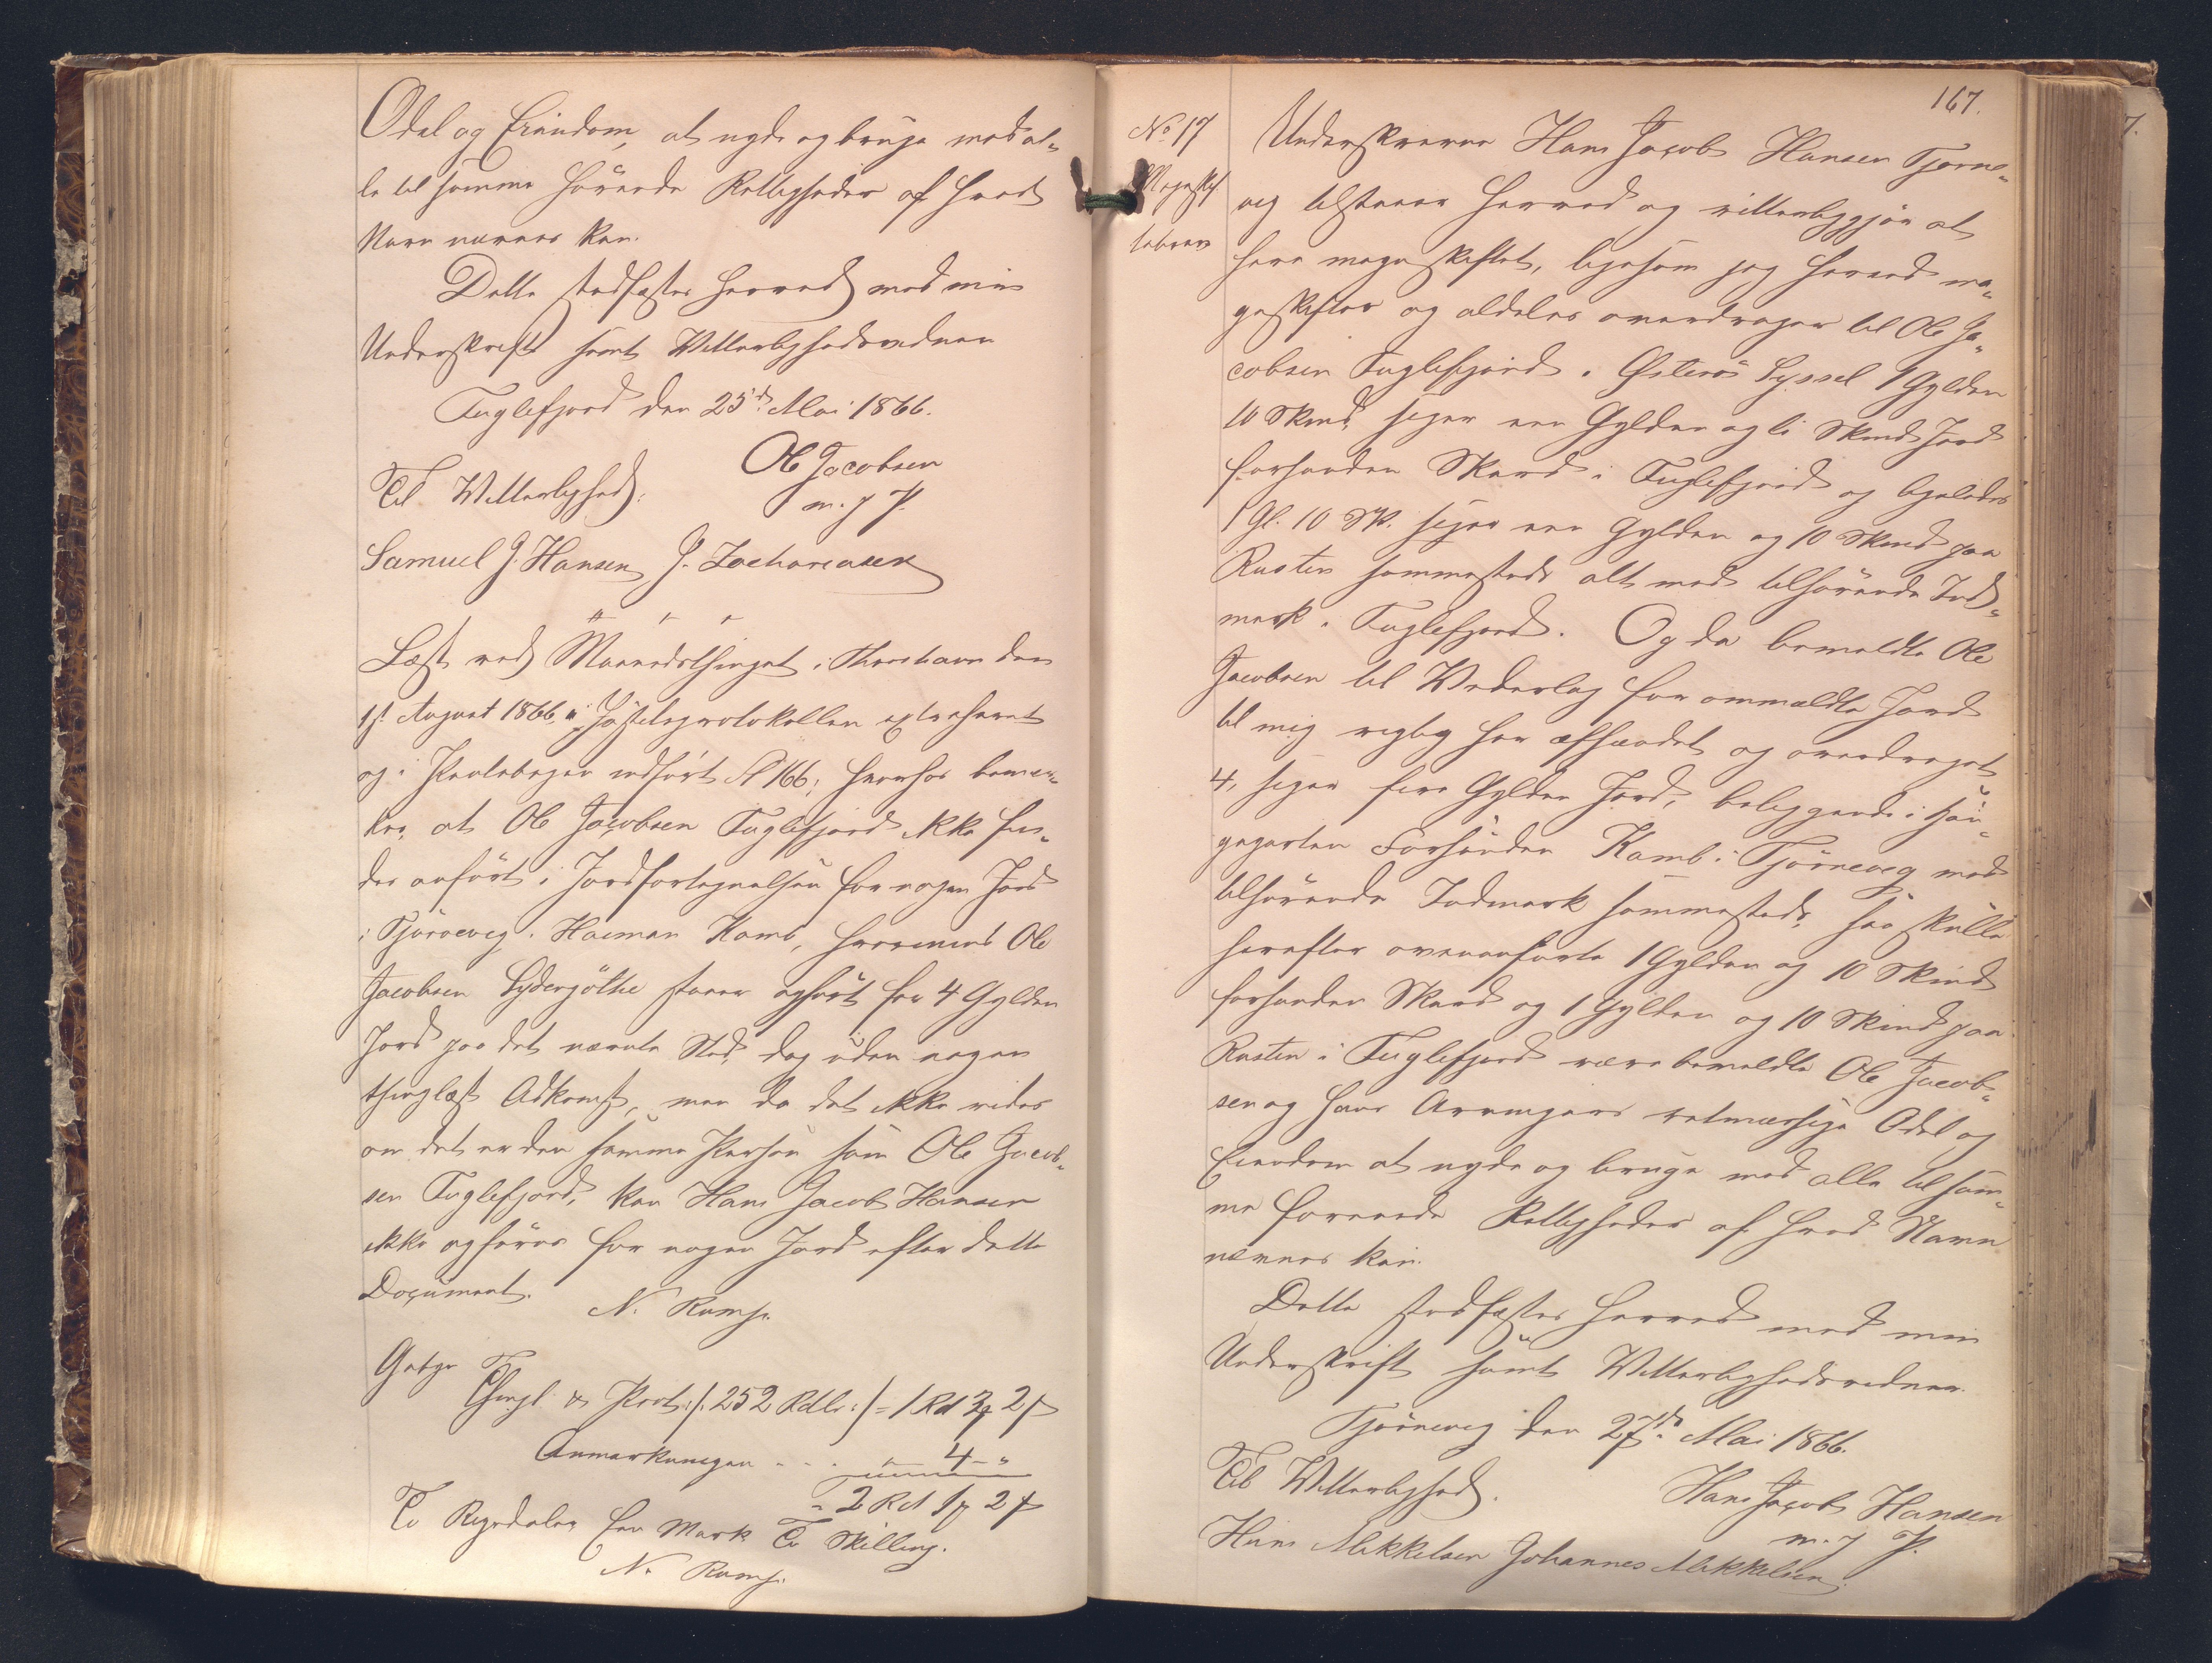 Odel og Eiendom, at nyde og bruge med al-
le til samme hörende Rettigheder af hvad
Navn nævnes kan.
Dette stadfæstes herved med min
Underskrift samt Vitterlighedsvidner
Fuglefjord den 25de Mai 1866.
Ole Jacobsen
m. f P.
Til Vitterlighed:
Samuel J. Hansen J. Zachariasen
Læst ved Maanedsthinget i Thorshavn den
1st August 1866, i Skjödeprotokollen extraheret
og i Pantebogen indfört Fl 166; hvorhos bemær-
kes, at Ole Jacobsen Fuglefjord ikke fin-
des anfört i Jordfortegnelsen for nogen Jord
i Tjörnevig. Haiman Kamb, hvorimod Ole
Jacobsen Sydergöthe staaer opfört for 4 Gylden
Jord paa det nævnte Sted, dog uden nogen
thinglæst Adkomst, men da det ikke vides
om det er den samme Person som Ole Jacob-
sen Fuglefjord, kan Hans Jacob Hansen
ikke opföres for nogen Jord efter dette
Document.
N. Rump.
Gebyr
Thingl. & Prot. /: 252 Rdlr :/ = 1 Rd 3 2
Anmærkningen - - . " 4 - "
= 2 Rd 1 2
To Rigsdaler Een Mark To Skilling.
N. Rump.
167.
No 17
Mageskif
tebrev
Underskrevne Hans Jacob Hansen Tjørne-
vig tilstaaer herved og vitterliggjör at
have mageskiftet, ligesom jeg herved ma-
geskifter og aldeles overdrager til Ole Ja-
cobsen Fuglefjord i Østerö Syssel 1 Gylden
10 Skind, siger een Gylden og ti Skind Jord
forhenden Skard i Fuglefjord og ligeledes
1 Gl. 10 Sk. siger een Gylden og 10 Skind paa
Rusten sammesteds alt med tilhörende Ind-
mark i Fuglefjord. Og da bemeldte Ole
Jacobsen til Vederlag for ommældte Jord
til mig rigtig har afhændet og overdraget
4, siger fire Gylden Jord, beliggende i
gegarten forhenden Kamb i Tjörnevig med
tilhörende Indmark sammesteds, saa skulle
herefter ovenanförte 1 Gylden og 10 Skind
forhenden Skard og 1 Gylden og 10 Skind paa
Rusten i Fuglefjord være bemeldte Ole Jacob-
sen og hans Arvingers retmæssige Odel og
Eiendom at nyde og bruge med alle til sam-
me hörende Rettigheder af hvad Navn
nævnes kan.
Dette stadfæstes herved med min
Underskrift samt Vitterlighedsvidner.
Tjörnevig den 27de Mai 1866.
Til Vitterlighed.
Hans Jacob Hansen
m. f P.
Hans Mikkelsen Johannes Mikkelsen.